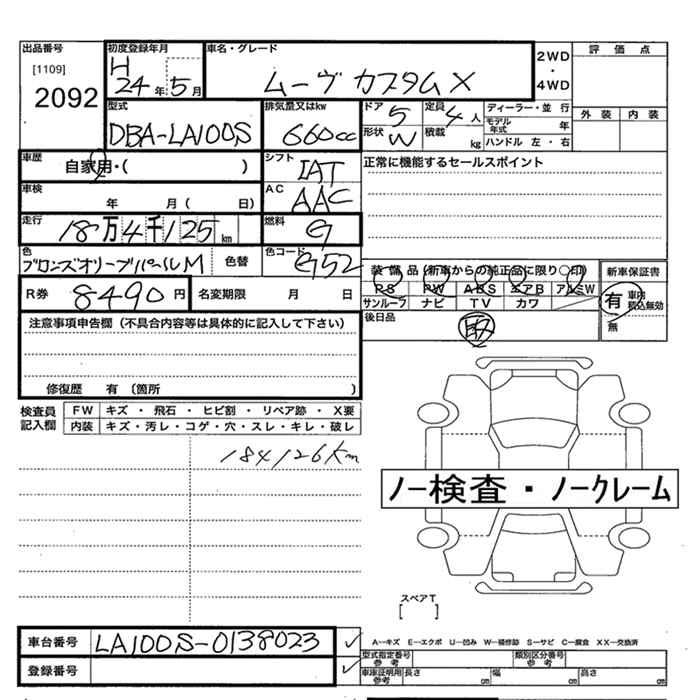 出品番号 初度登録年月 車名・グレード 2WD・4WD 評価点
[1109] H
2092 24年5月 ムーヴカスタムX
型式 排気量又はkw ドア 5 定員 4人 ディーラー・並行 外装 内装
DBA-LA100S 660cc 形状 W 積載 kg モデル年式 年
ハンドル 左・右
車歴 自家用・( ) シフト IAT 正常に機能するセールスポイント
車検 年 月( 日) AC AAC
走行 18万4千125km 燃料 G
色 ブロンズオリーブパールM 色替 色コード G52
装備品(新車からの純正品に限り○印) 新車保証書
PS PW ABS エアB アルミW 有 車内 積込無効
サンルーフ ナビ TV カワ 無
R券 8490円 名変期限 月 日
後日品 取
注意事項申告欄(不具合内容等は具体的に記入して下さい)
修復歴 有 〔箇所 )
検査員記入欄 FW キズ・飛石・ヒビ割・リペア跡・X要
内装 キズ・汚レ・コゲ・穴・スレ・キレ・破レ
184126Km
ノー検査・ノークレーム
スペアT
[ ]
車台番号 LA100S-0138023
登録番号
A-キズ E-エクボ U-凹み W-補修跡 S-サビ C-腐食 XX-交換済
型式指定番号 参考 類別区分番号 参考
車庫証明用 参考 長さ cm 幅 cm 高さ cm